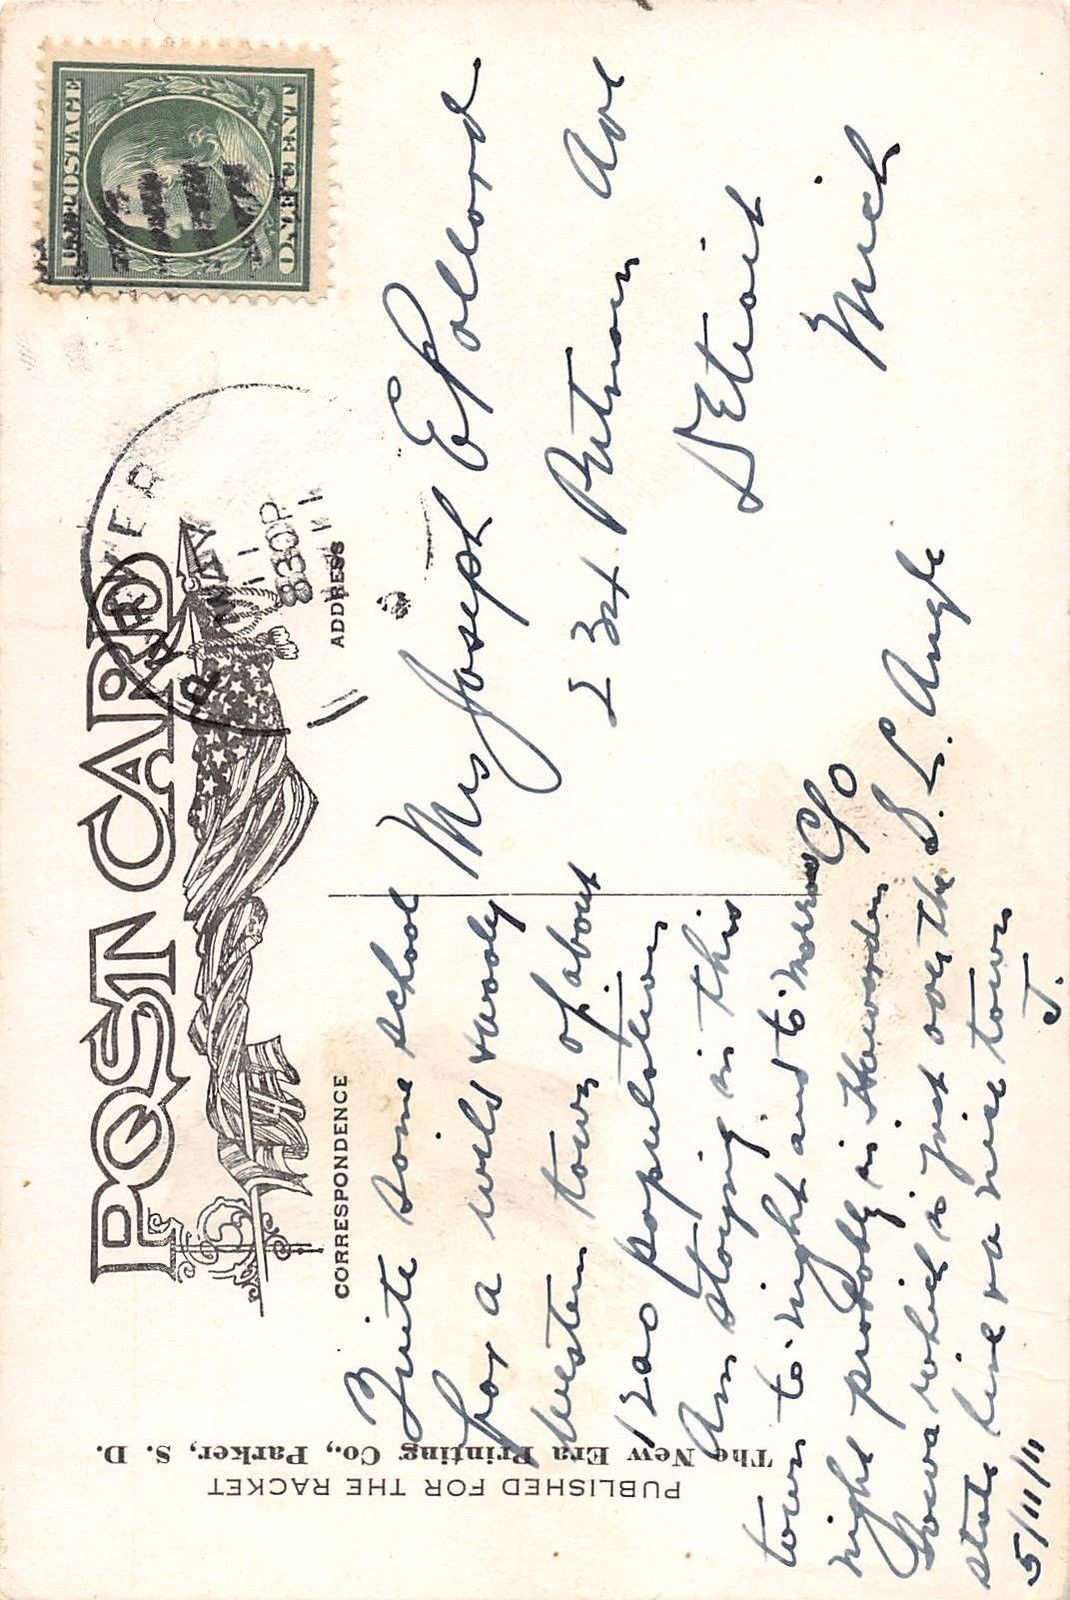 POST CARD
CORRESPONDENCE
ADDRESS
U.S. POSTAGE
ONE CENT
MAY
11
830P
Quite some school
for a wild & wooly
western town of about
1200 population
Am staying in this
town to-night and to-morrow
night probably in Hawarden
Iowa which is just over the
state line & a nice town
5/11/11 J.
Mrs Joseph E Pollard
231 Putnam Ave
Detroit
Mich
C/O
S. L. Angle
PUBLISHED FOR THE RACKET
The New Era Printing Co., Parker, S. D.